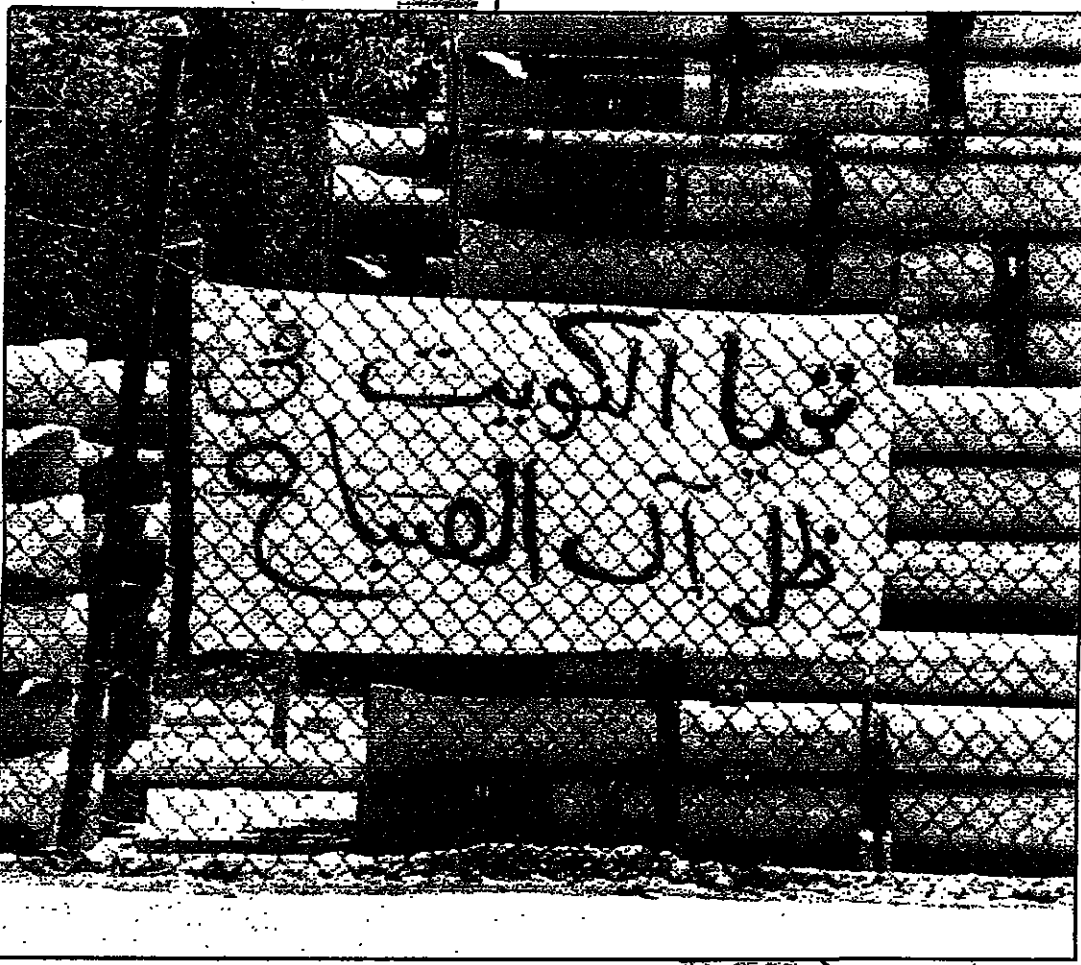 تحيا الكويت في
ظل آل الصباح